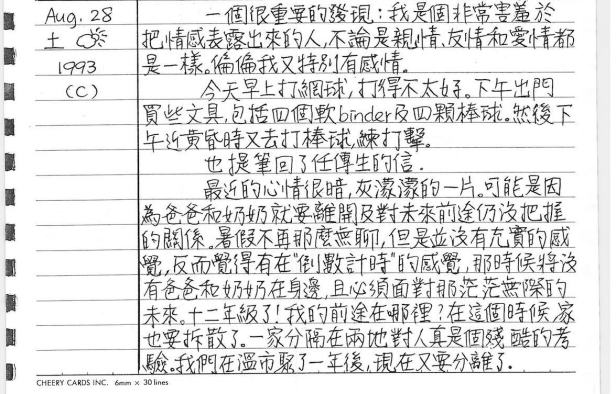 Aug. 28
土
1993
(C)
一個很重要的發現:我是個非常害羞於
把情感表露出來的人,不論是親情、友情和愛情都
是一樣。偏偏我又特別有感情。
今天早上打網球,打得不太好。下午出門
買些文具,包括四個軟binder及四顆棒球。然後下
午近黃昏時又去打棒球,練打擊。
也提筆回了任傳生的信.
最近的心情很暗,灰濛濛的一片。可能是因
為爸爸和奶奶就要離開及對未來前途仍沒把握
的關係。暑假不再那麼無聊,但是並沒有充實的感
覺,反而覺得有在"倒數計時"的感覺,那時候將沒
有爸爸和奶奶在身邊,且必須面對那茫茫無際的
未來。十二年級了!我的前途在哪裡?在這個時候,家
也要拆散了。一家分隔在兩地對人真是個殘酷的考
驗。我們在溫市聚了一年後,現在又要分離了.
CHEERY CARDS INC. 6mm × 30 lines